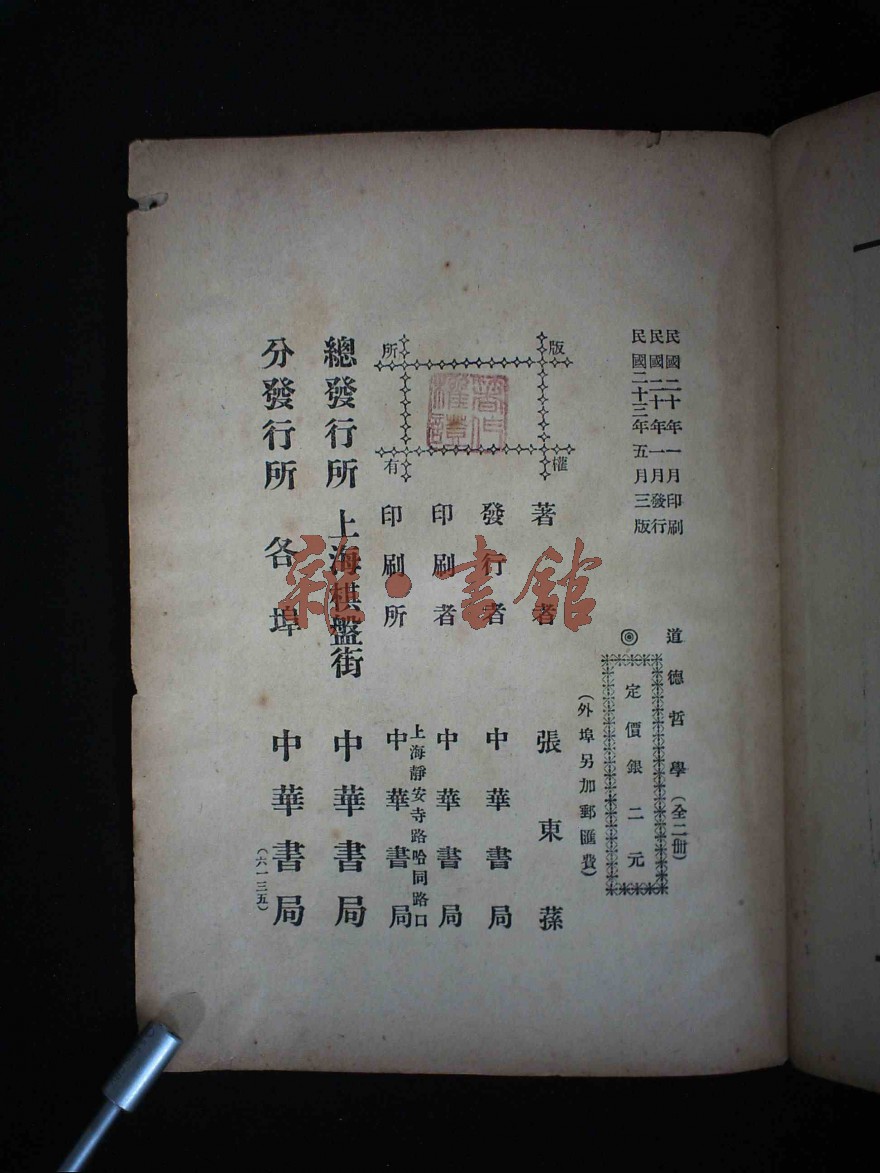 民國二十年一月印刷
民國二十年一月發行
民國二十三年五月三版
道德哲學（全二冊）
◎
定價銀二元
（外埠另加郵匯費）
版權所有
著者 張東蓀
發行者 中華書局
印刷者 中華書局
上海靜安寺路哈同路口
印刷所 中華書局
總發行所 上海棋盤街 中華書局
分發行所 各埠 中華書局
（六一三五）
雜·書館